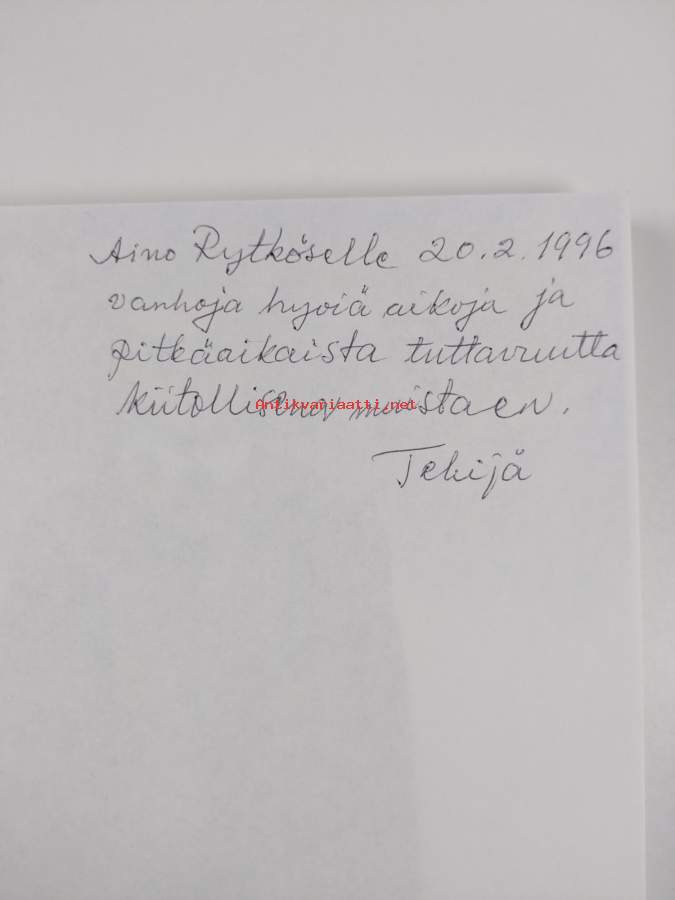 Aino Rytköselle 20.2.1996
vanhoja hyviä aikoja ja
pitkäaikaista tuttavuutta
kiitollisena muistaen.
Antikvariaatti.net
Tekijä